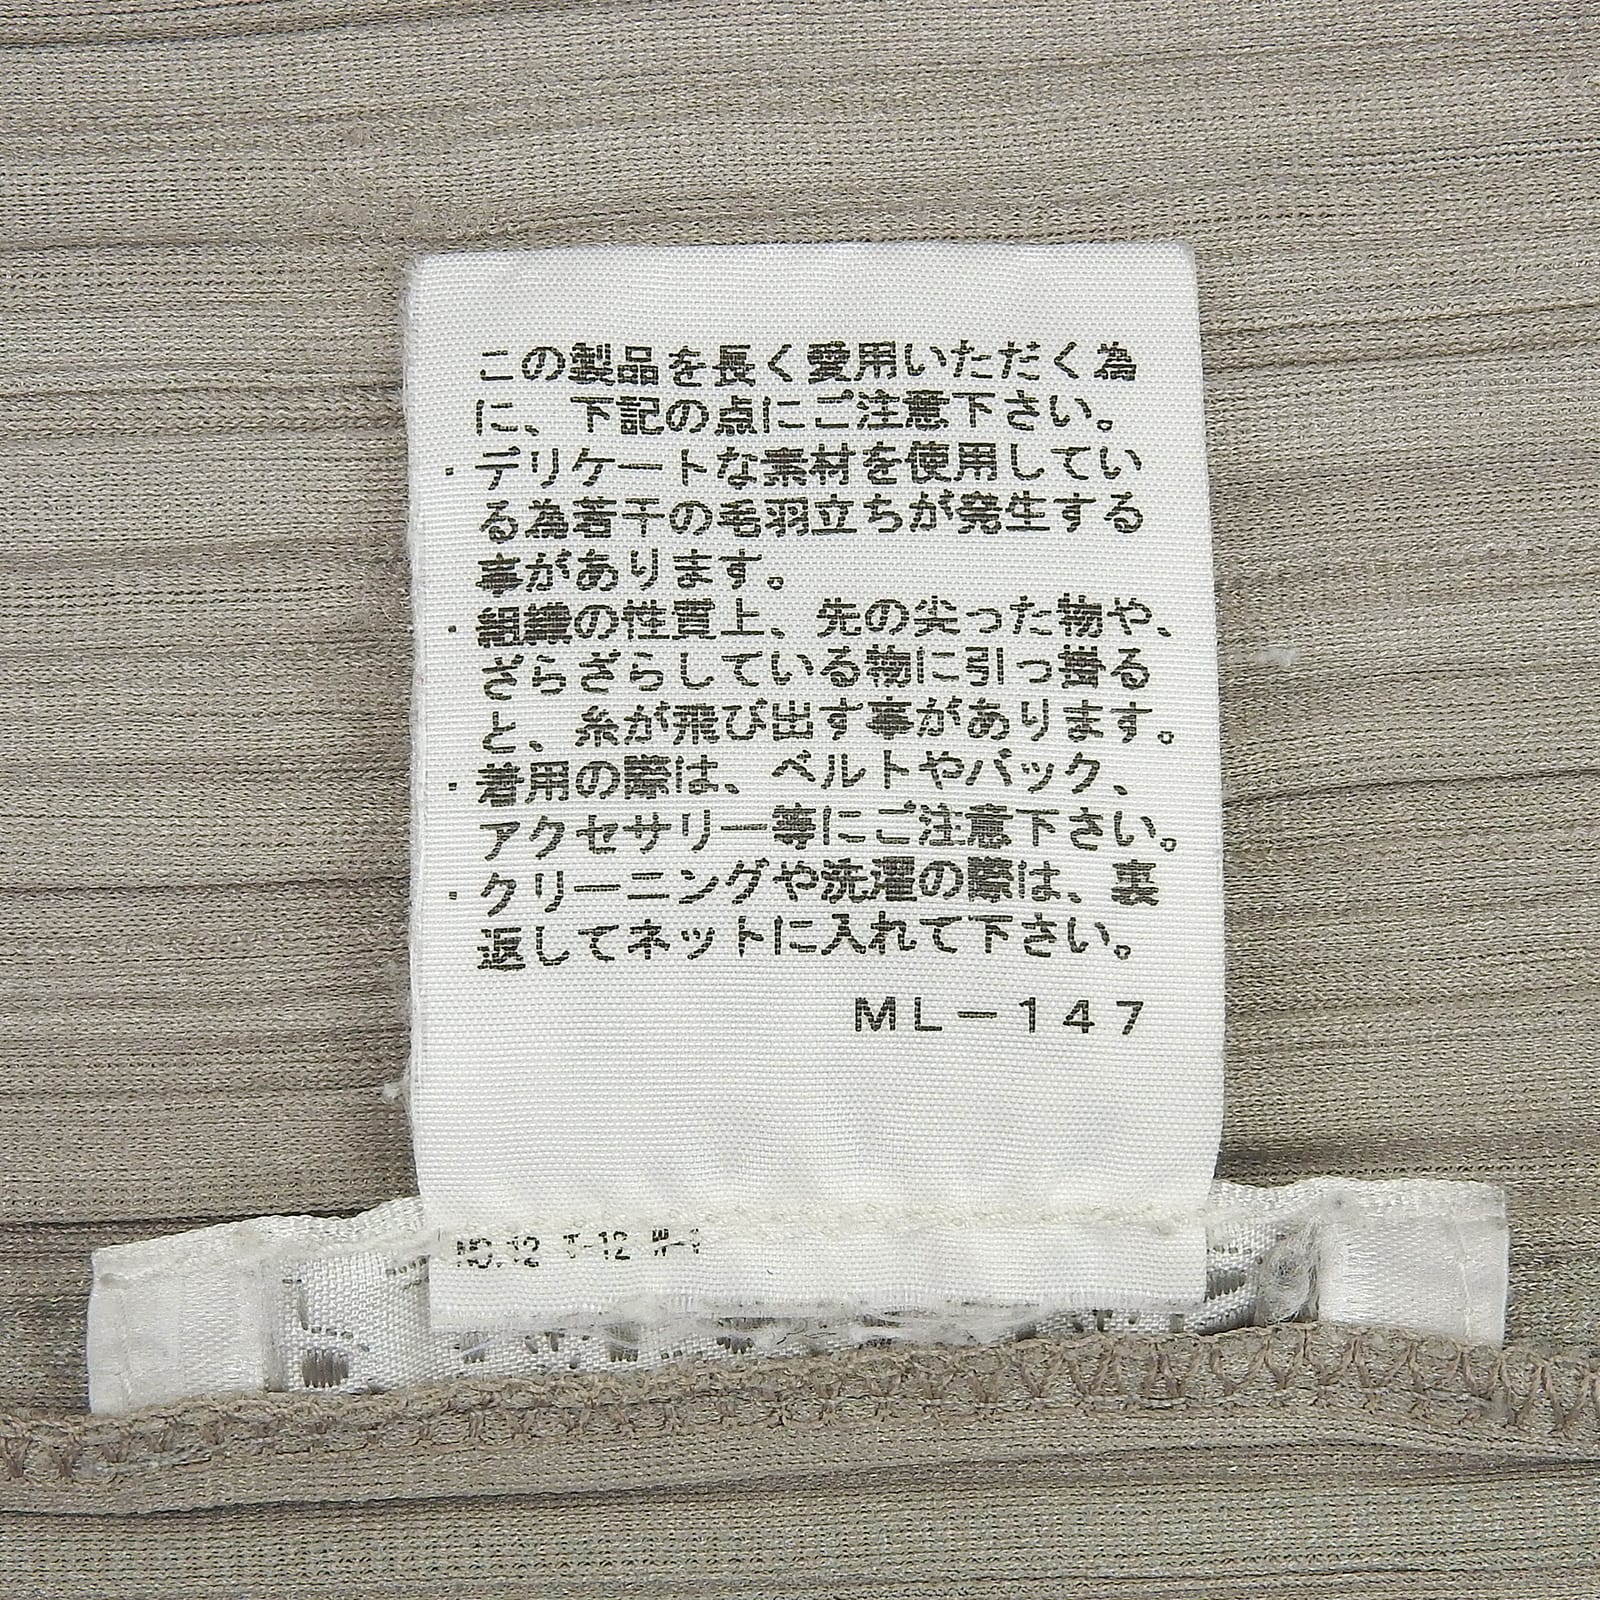 この製品を長く愛用いただく為
に、下記の点にご注意下さい。
・デリケートな素材を使用してい
る為若干の毛羽立ちが発生する
事があります。
・組織の性質上、先の尖った物や、
ざらざらしている物に引っ掛る
と、糸が飛び出す事があります。
・着用の際は、ベルトやバック、
アクセサリー等にご注意下さい。
・クリーニングや洗濯の際は、裏
返してネットに入れて下さい。
ML-147
NO.12 T-12